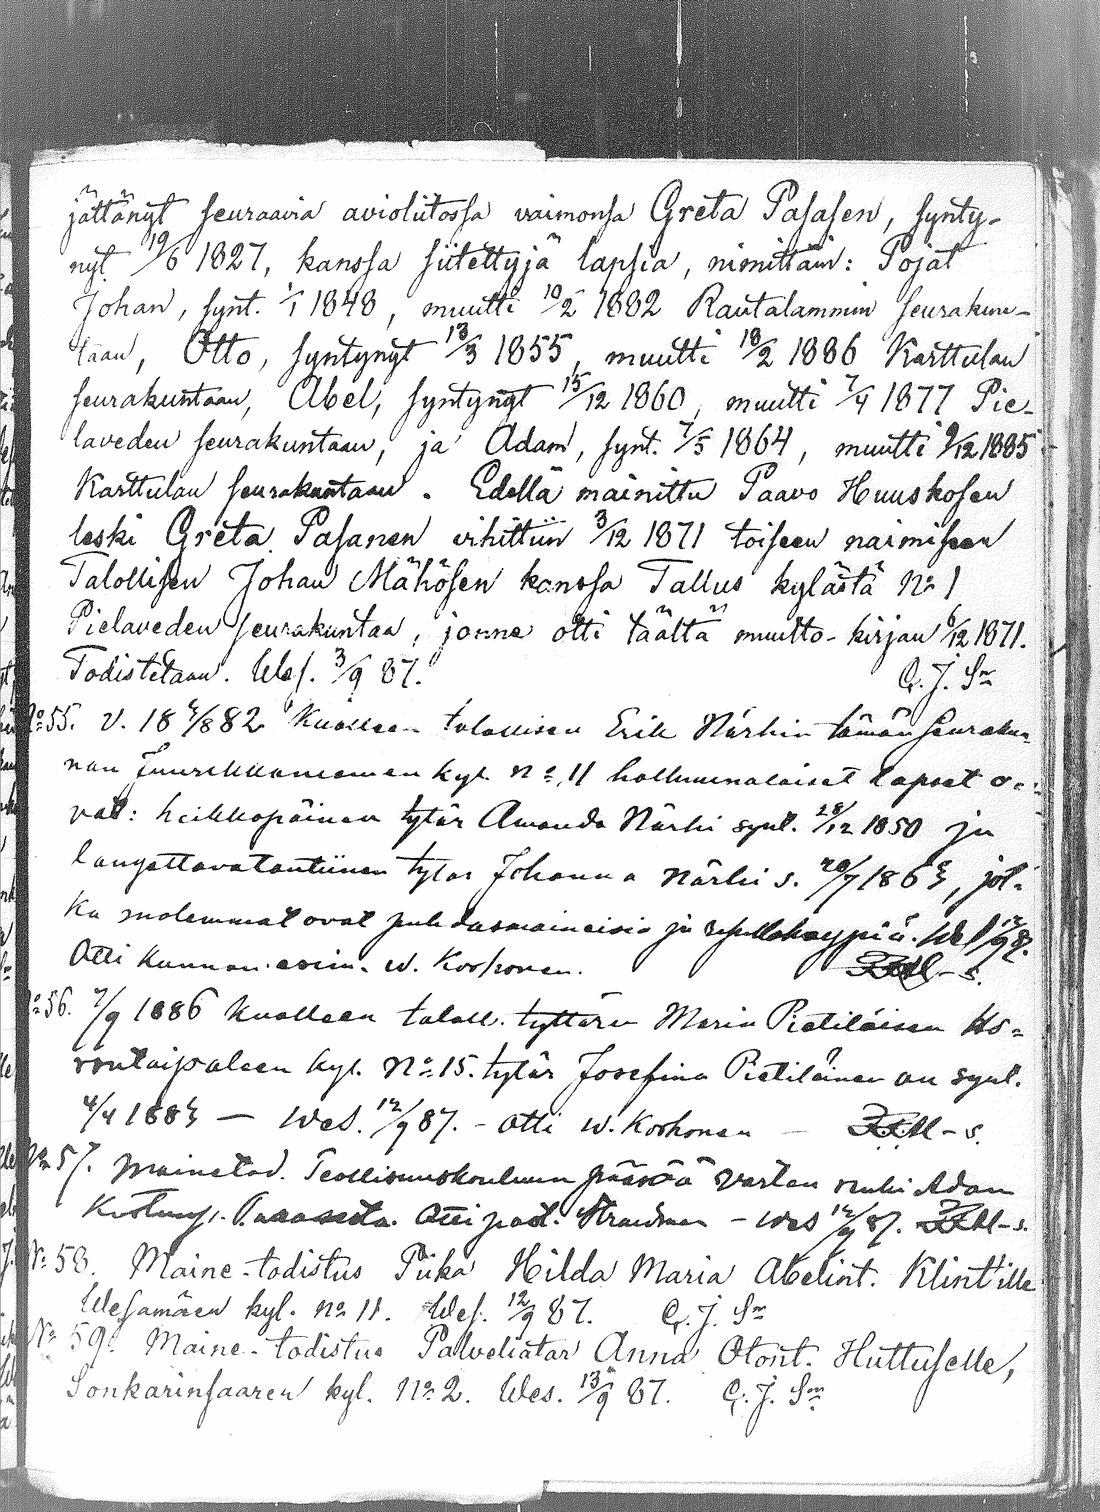 jättänyt seuraavia avioliitossa vaimonsa Greta Pasasen, synty-
nyt 19/6 1827, kanssa siitettyjä lapsia, nimittäin: Pojat
Johan, synt. 1/1 1848, muutti 10/2 1882 Rautalammin seurakun-
taan, Otto, syntynyt 13/3 1855, muutti 18/2 1886 Karttulan
seurakuntaan, Abel, syntynyt 15/12 1860, muutti 7/4 1877 Pie-
laveden seurakuntaan, ja Adam, synt. 7/5 1864, muutti 9/12 1885
Karttulan seurakuntaan. Edellä mainittu Paavo Huuskosen
leski Greta Pasanen vihittiin 3/12 1871 toiseen naimiseen
Talollisen Johan Mähösen kanssa Tallus kylästä No 1
Pielaveden seurakuntaa, jonne otti täältä muutto-kirjan 6/12 1871.
Todistetaan. Wes. 3/9 87. C. J. Sm
No 55. V. 18 /8 82 Kuolleen talollisen Erik Närhin tämän seuraku-
nan kyl. No 11 holhuunalaiset lapset o-
vat: heikkopäinen tytär Amanda Närhi synt. 28/12 1850 ja
langettavatautinen tytär Johanna Närhi s. 20/7 186, jot-
ka molemmat ovat puhdasmaineisia ja ripillekäypiä. Wes 12/9 87.
Otti kunnan esim. W. Korhonen.
No 56. 7/9 1886 kuolleen taloll. tyttären Maria Pietiläisen Ho-
rontaipaleen kyl. No 15. tytär Josefina Pietiläinen on synt.
4/4 188 — Wes. 12/9 87. - Otti W. Korhonen —
No 57. Mainetod. Teollisuuskouluun pääsöä varten renki Adam
Otti past. Strandman - Wes 12/9 87.
No 58. Maine-todistus Piika Hilda Maria Abelint. Klint'ille
Wesamäen kyl. No 11. Wes. 12/9 87. C. J. Sm
No 59. Maine-todistus Palveliatar Anna Otont. Huttuselle,
Sonkarinsaaren kyl. No 2. Wes. 13/9 87. C. J. Sm